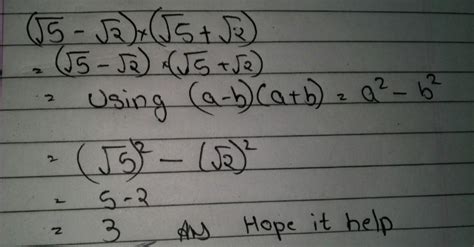 (√5 - √2)×(√5 + √2)
= (√5 - √2) ×(√5 + √2)
= Using (a-b)(a+b) = a² - b²
= (√5)² - (√2)²
= 5-2
= 3 Ans Hope it help